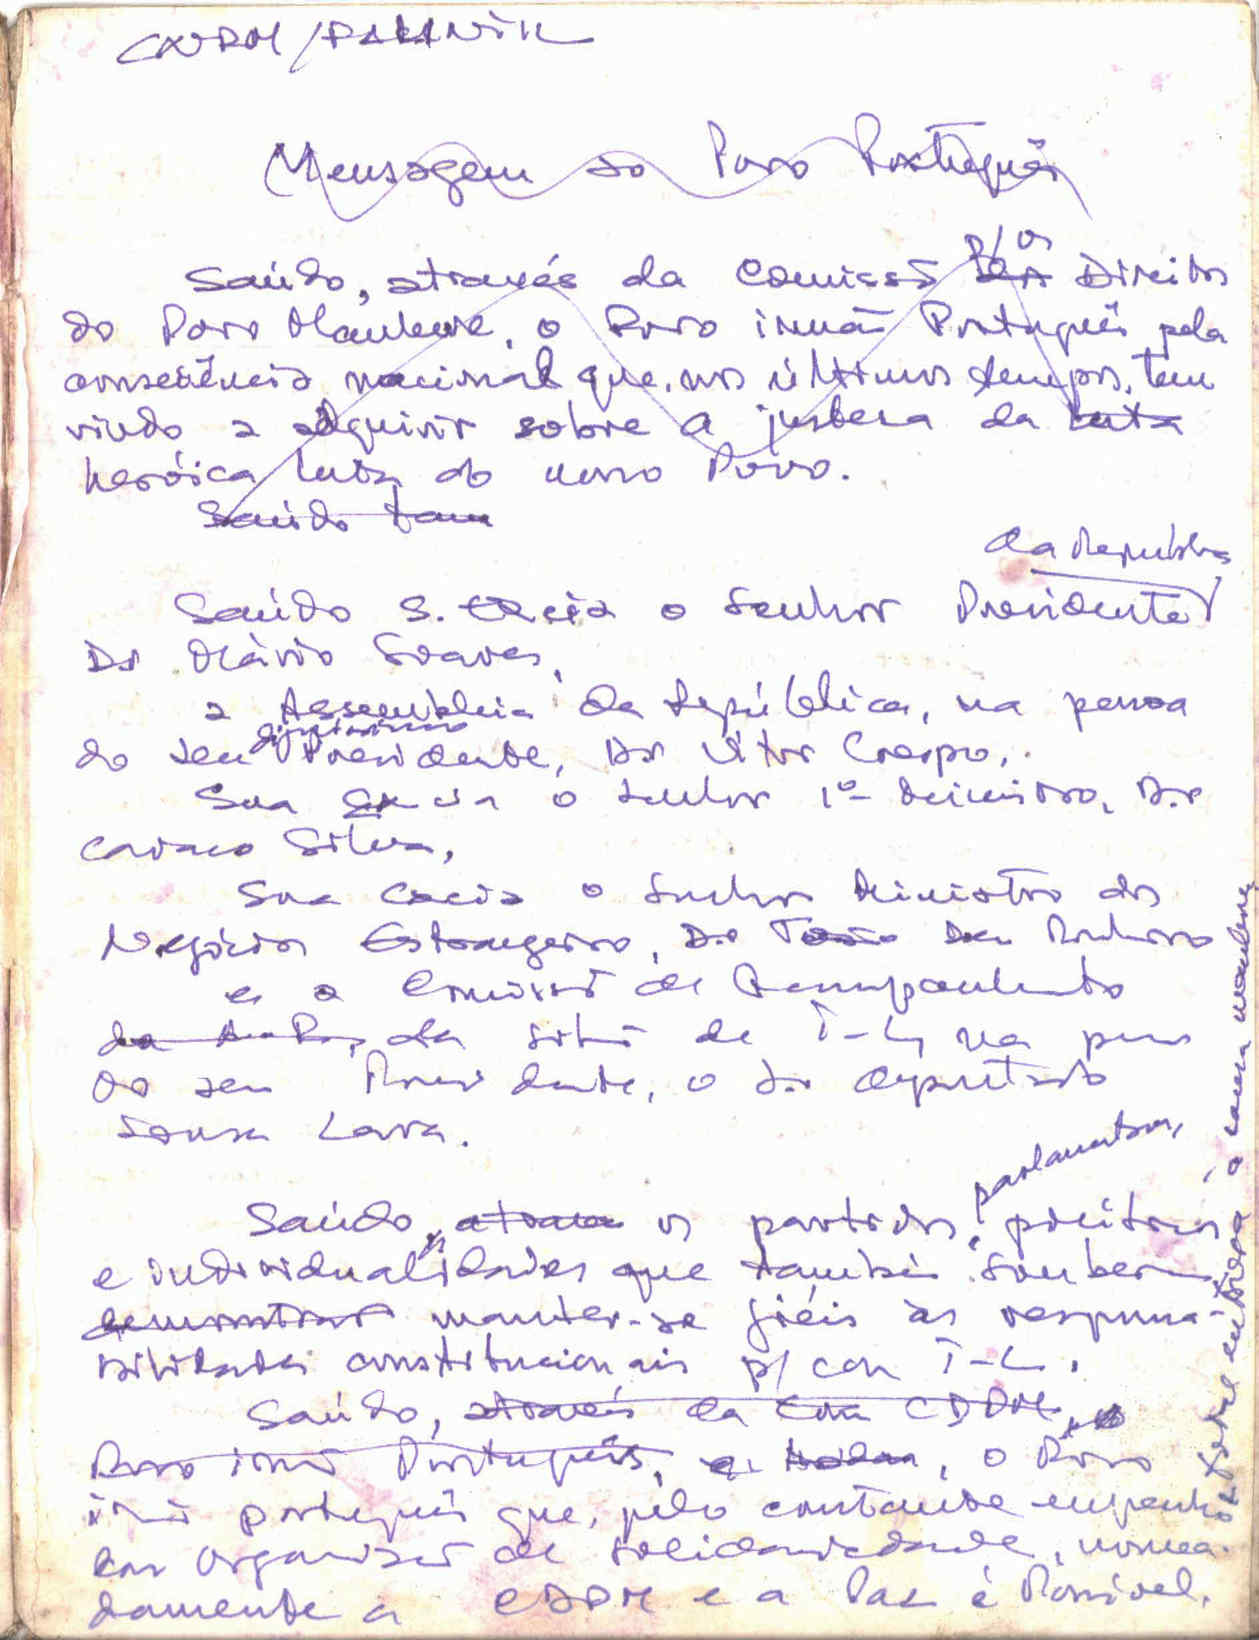 CNRM /FALINTIL
Mensagem ao Povo Português
Saúdo, através da Comissão p/ os Direitos
do Povo Maubere, o Povo irmão Português pela
consciência nacional que, nos últimos tempos, tem
vindo a adquirir sobre a justeza da luta
heróica luta do nosso Povo.
Saúdo tam
da República
Saúdo S. Excia o Senhor Presidente
Dr Mário Soares,
a Assembleia da República, na pessoa
digníssimo
do seu Presidente, Dr Vítor Crespo,
Sua Excia o Senhor 1º Ministro, Dr
Cavaco Silva,
Sua Excia o Senhor Ministro dos
Negócios Estrangeiros, Dr João de Deus Pinheiro
e a Comissão de Acompanhamento
da sitᵒ de T-L, na pessoa
do seu Presidente, o Sr deputado
Sousa Lara.
parlamentares,
Saúdo, os partidos, políticos
e individualidades que também souberam
demonstrar manter-se fiéis às responsa-
bilidades constitucionais p/ com T-L.
Saúdo, através da Com CDDM, o
Povo irmão Português, e, o Povo
irmão português que, pelo constante empenho
em organizações de solidariedade, nomea-
damente a CDPM e a Paz é Possível,
sobre entrega à causa maubere